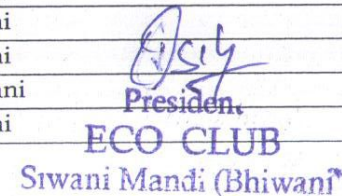 ni
ni
ani
ni
President
ECO CLUB
Siwani Mandi (Bhiwani)